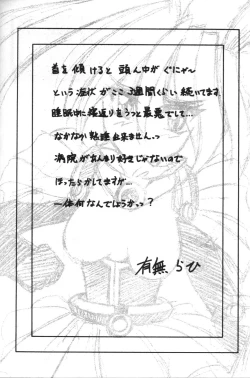 首を傾けると 頭ん中が ぐにゃ〜
という症状がここ3週間くらい 続いてます
睡眠中に寝返りをうつと最悪でして…
なかなか熟睡出来ませんっ
病院があんまり好きじゃないので
ほったらかしてますが…
一体何なんでしょうかっ？
有無らひ